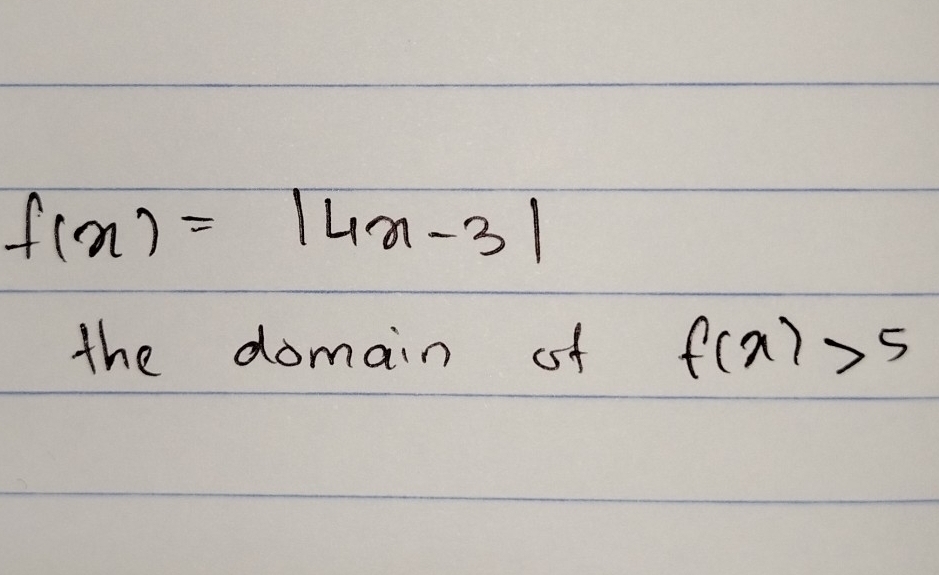 f(x) = |4x-3|
the domain of f(x) > 5